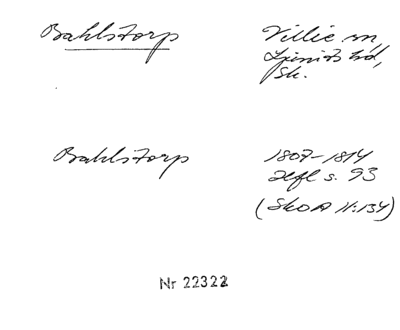 Bahlstorp Villie sn,
Ljunits hd,
Sk.
Bahlstorp 1807-1814
Hfl s. 93
(SkOA II:134)
Nr 22322